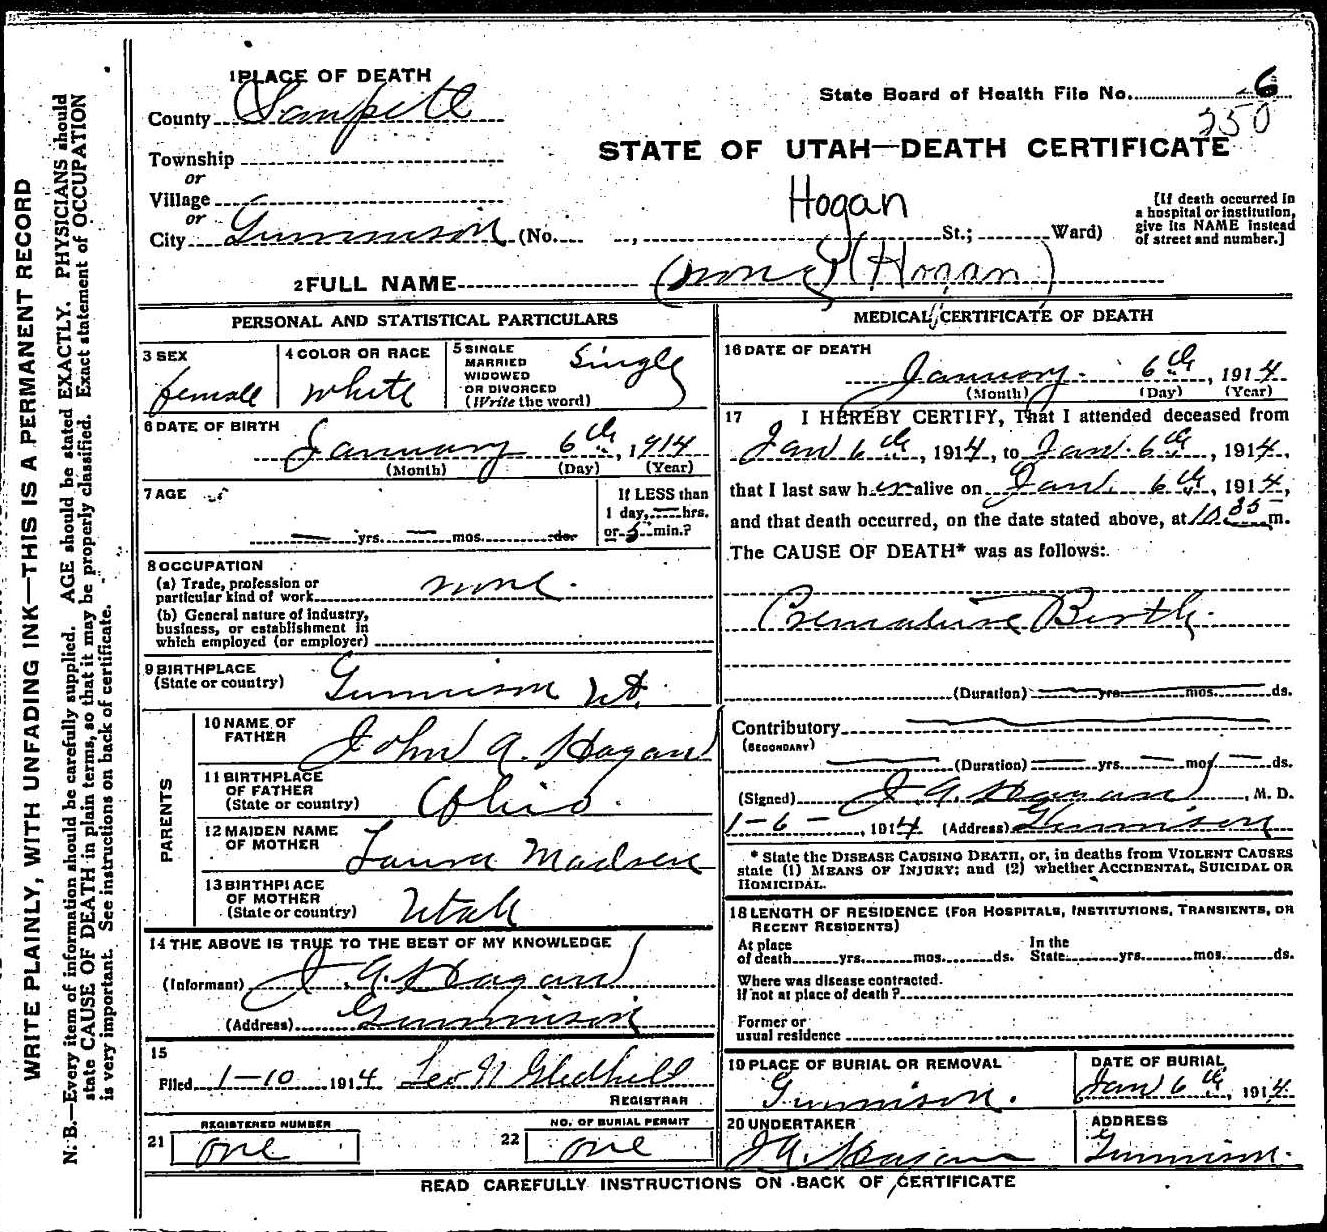 WRITE PLAINLY, WITH UNFADING INK—THIS IS A PERMANENT RECORD
N. B.—Every item of information should be carefully supplied. AGE should be stated EXACTLY. PHYSICIANS should
state CAUSE OF DEATH in plain terms, so that it may be properly classified. Exact statement of OCCUPATION
is very important. See instructions on back of certificate.
1 PLACE OF DEATH
County Sanpete
Township
or
Village
or
City Gunnison (No. , St.; Ward)
State Board of Health File No. 6
250
STATE OF UTAH—DEATH CERTIFICATE
Hogan
[If death occurred in
a hospital or institution,
give its NAME instead
of street and number.]
2 FULL NAME (none) (Hogan)
PERSONAL AND STATISTICAL PARTICULARS
3 SEX
female
4 COLOR OR RACE
white
5 SINGLE
MARRIED
WIDOWED
OR DIVORCED
(Write the word)
Single
6 DATE OF BIRTH
January 6th, 1914
(Month) (Day) (Year)
7 AGE
— yrs. — mos. ds.
If LESS than
1 day, — hrs.
or 5 min.?
8 OCCUPATION
(a) Trade, profession or
particular kind of work none.
(b) General nature of industry,
business, or establishment in
which employed (or employer)
9 BIRTHPLACE
(State or country) Gunnison Ut.
PARENTS
10 NAME OF
FATHER John A. Hagan
11 BIRTHPLACE
OF FATHER
(State or country) Ohio.
12 MAIDEN NAME
OF MOTHER Laura Madsen
13 BIRTHPLACE
OF MOTHER
(State or country) Utah
14 THE ABOVE IS TRUE TO THE BEST OF MY KNOWLEDGE
(Informant) J. A. Hagan
(Address) Gunnison
15
Filed 1-10 1914 Leo N Gledhill
REGISTRAR
21 REGISTERED NUMBER
one
22 NO. OF BURIAL PERMIT
one
MEDICAL CERTIFICATE OF DEATH
16 DATE OF DEATH
January 6th, 1914
(Month) (Day) (Year)
17 I HEREBY CERTIFY, That I attended deceased from
Jan 6th, 1914, to Jan. 6th, 1914,
that I last saw her alive on Jan. 6th, 1914,
and that death occurred, on the date stated above, at 10.35 m.
The CAUSE OF DEATH* was as follows:
Premature Birth.
(Duration) — yrs. — mos. — ds.
Contributory —
(SECONDARY)
— (Duration) — yrs. — mos. — ds.
(Signed) J. A. Hagan, M. D.
1-6-, 1914 (Address) Gunnison
* State the DISEASE CAUSING DEATH, or, in deaths from VIOLENT CAUSES
state (1) MEANS OF INJURY; and (2) whether ACCIDENTAL, SUICIDAL OR
HOMICIDAL.
18 LENGTH OF RESIDENCE (FOR HOSPITALS, INSTITUTIONS, TRANSIENTS, OR
RECENT RESIDENTS)
At place
of death yrs. mos. ds.
In the
State yrs. mos. ds.
Where was disease contracted.
if not at place of death?
Former or
usual residence
19 PLACE OF BURIAL OR REMOVAL
Gunnison.
DATE OF BURIAL
Jan 6th, 1914
20 UNDERTAKER
J A. Hagan
ADDRESS
Gunnison.
READ CAREFULLY INSTRUCTIONS ON BACK OF CERTIFICATE